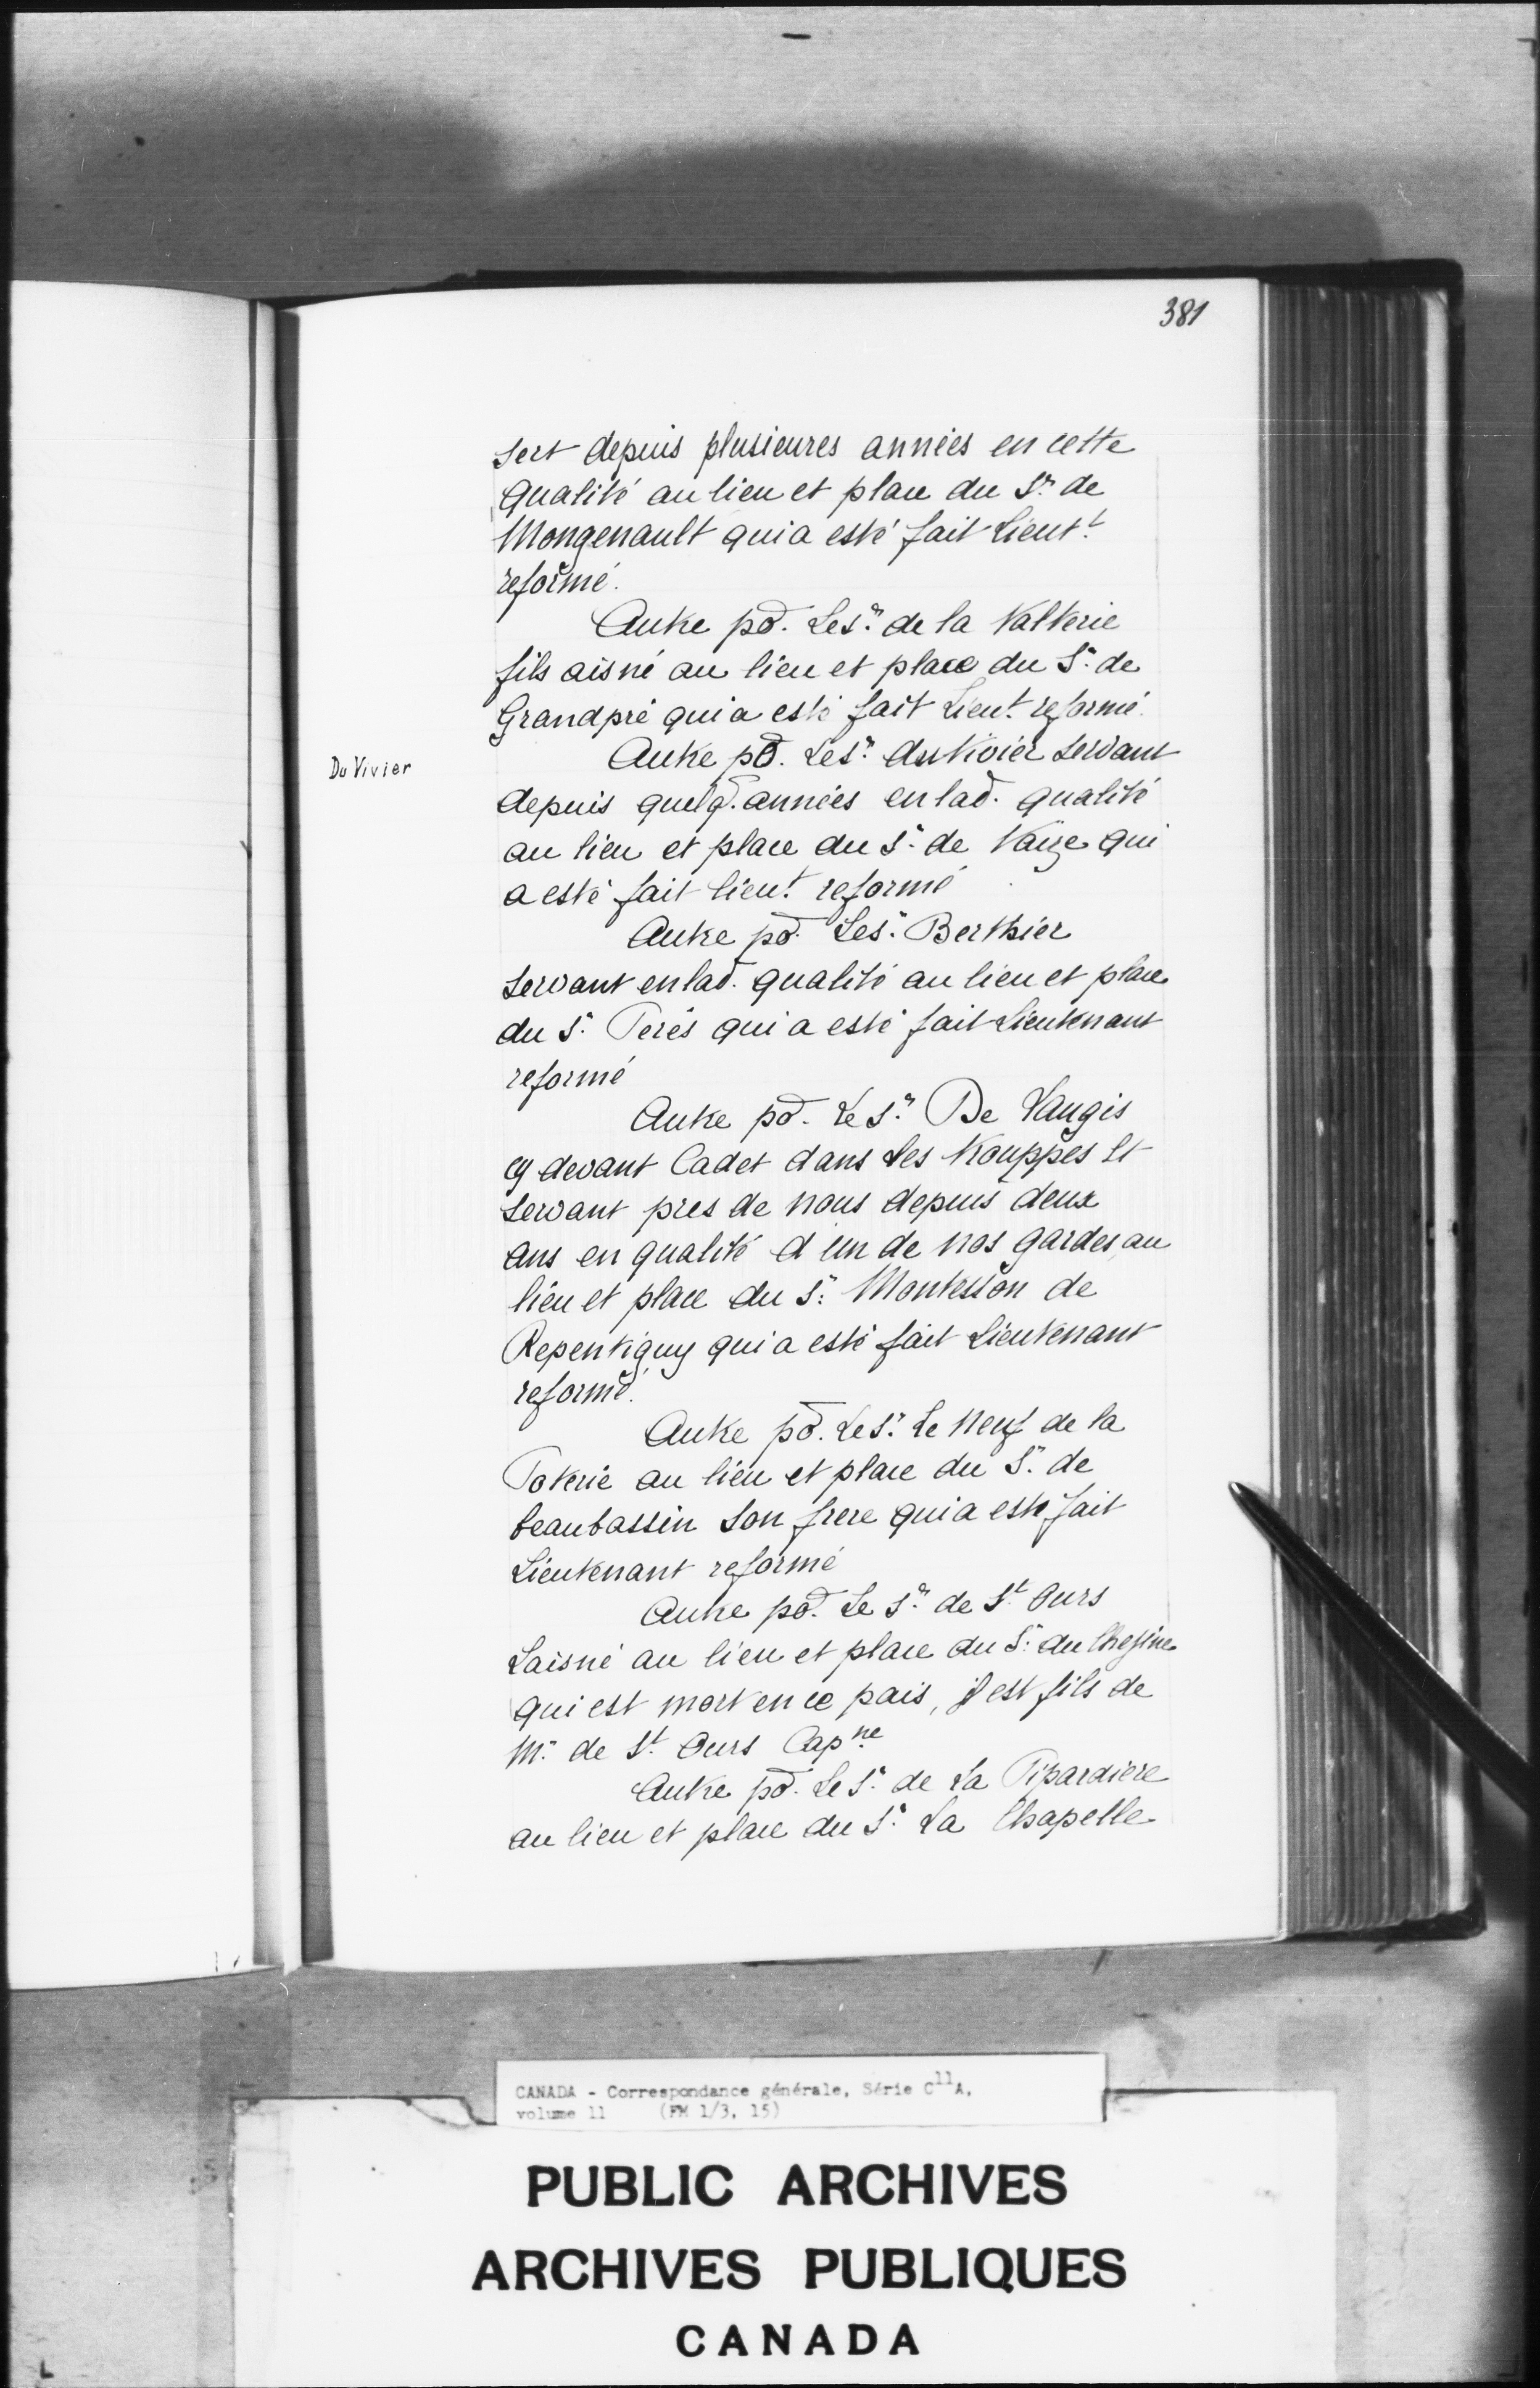 381
sert depuis plusieures années en cette
qualité au lieu et place du Sr. de
Mongenault qui a esté fait Lieutt.
reformé.
Autre pd. Le Sr. de la Valterie
fils aisné au lieu et place du Sr. de
Grandpré qui a esté fait Lieut. reformé.
Du Vivier
Autre pd. Le Sr. du Vivier servant
depuis quelq. années en lad. qualité
au lieu et place du Sr. de qui
a esté fait lieut. reformé
Autre pd. Le Sr. Berthier
servant en lad. qualité au lieu et place
du Sr. Perés qui a esté fait Lieutenant
reformé
Autre pd. Le Sr. De Vaugis
cy devant Cadet dans Les trouppes Et
servant pres de nous depuis deux
ans en qualité d'un de nos gardes, au
lieu et place du Sr. Montesson de
Repentigny qui a esté fait Lieutenant
reformé.
Autre pd. Le Sr. Le Neuf de la
Poterie au lieu et place du Sr. de
beaubassin Son frere qui a esté fait
Lieutenant reformé
Autre pd. Le Sr. de St Ours
Laisné au lieu et place du Sr. du Chesine
qui est mort en ce païs, il est fils de
Mr. de St. Ours Capne
Autre pd. Le Sr. de La Pipardiere
au lieu et place du Sr. La Chapelle
CANADA - Correspondance générale, Série C11A,
volume 11 (FM 1/3, 15)
PUBLIC ARCHIVES
ARCHIVES PUBLIQUES
CANADA